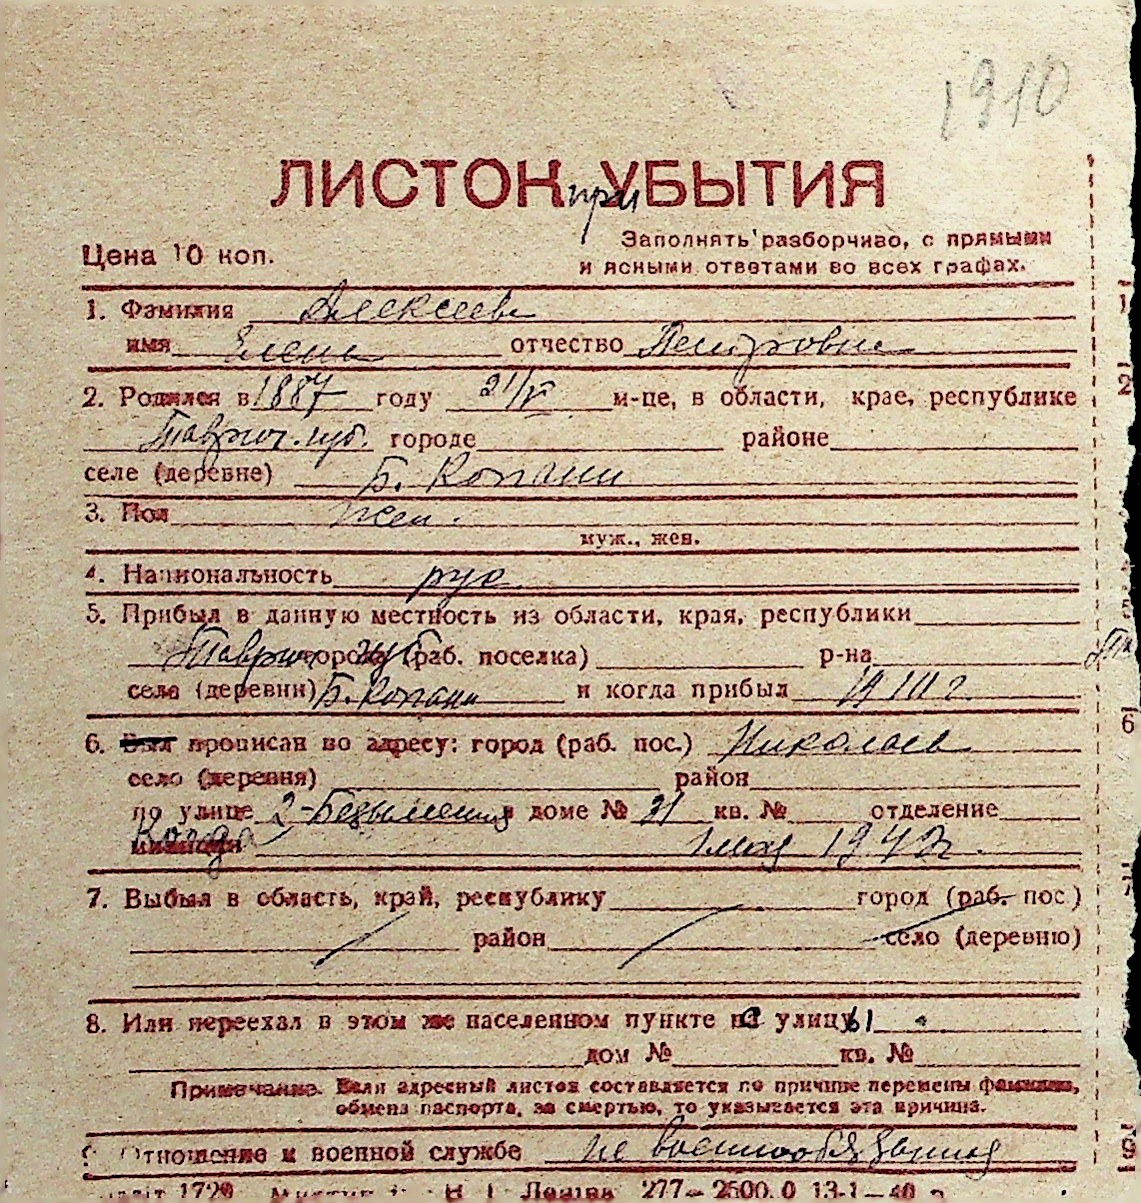 1910
ЛИСТОК при УБЫТИЯ
Цена 10 коп.
Заполнять разборчиво, с прямыми
и ясными ответами во всех графах.
1. Фамилия Алексеева
имя Елена отчество Петровна
2. Родился в 1887 году 21/V м-це, в области, крае, республике
Таврич. губ. городе районе
селе (деревне) Б. Копани
3. Пол жен.
муж., жен.
4. Национальность рус
5. Прибыл в данную местность из области, края, республики
Таврич. губ. города (раб. поселка) р-на
села (деревни) Б. Копани и когда прибыл 1911 г.
6. Был прописан по адресу: город (раб. пос.) Николаев
село (деревня) район
по улице 2-Безымення в доме № 31 кв. № отделение
Когда милиции 1 мая 1942 г.
7. Выбыл в область, край, республику город (раб. пос.)
район село (деревню)
8. Или переехал в этом же населенном пункте с улицы
дом № кв. №
Примечание. Если адресный листок составляется по причине перемены фамилии,
обмена паспорта, за смертью, то указывается эта причина.
9. Отношение к военной службе не военнообязанная
1720 277—2500.0 13-1—40 г.